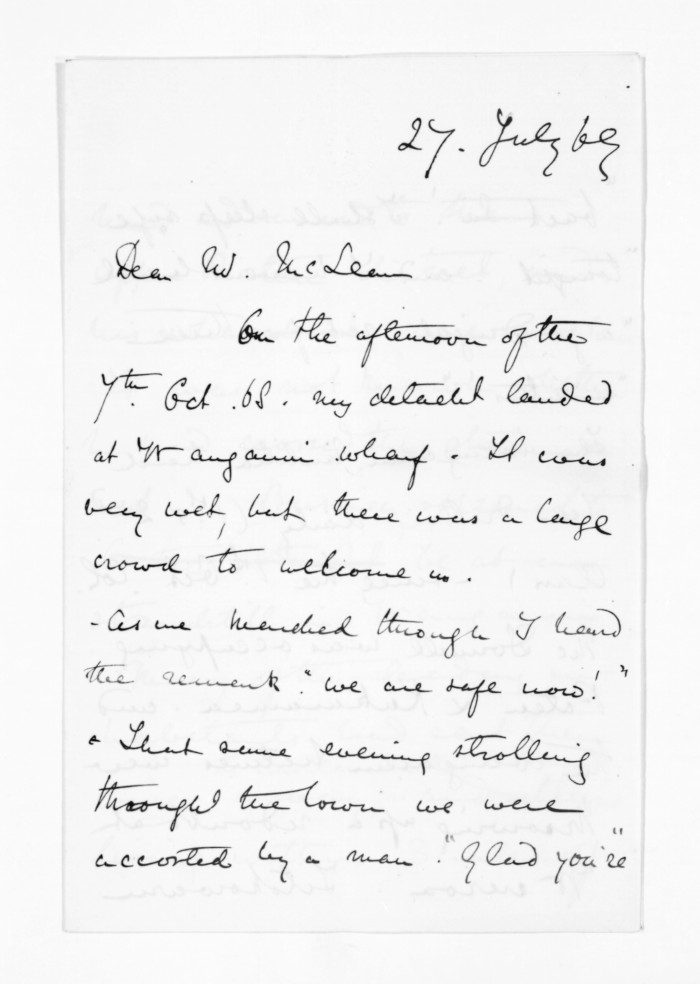 27. July 69
Dear Mr. McLean
On the afternoon of the
7th. Oct. 68. my detacht landed
at Wanganui wharf. It was
very wet, but there was a large
crowd to welcome us.
- As we marched through I heard
the remark "we are safe now!"
& That same evening strolling
through the town we were
accosted by a man. "Glad you're"